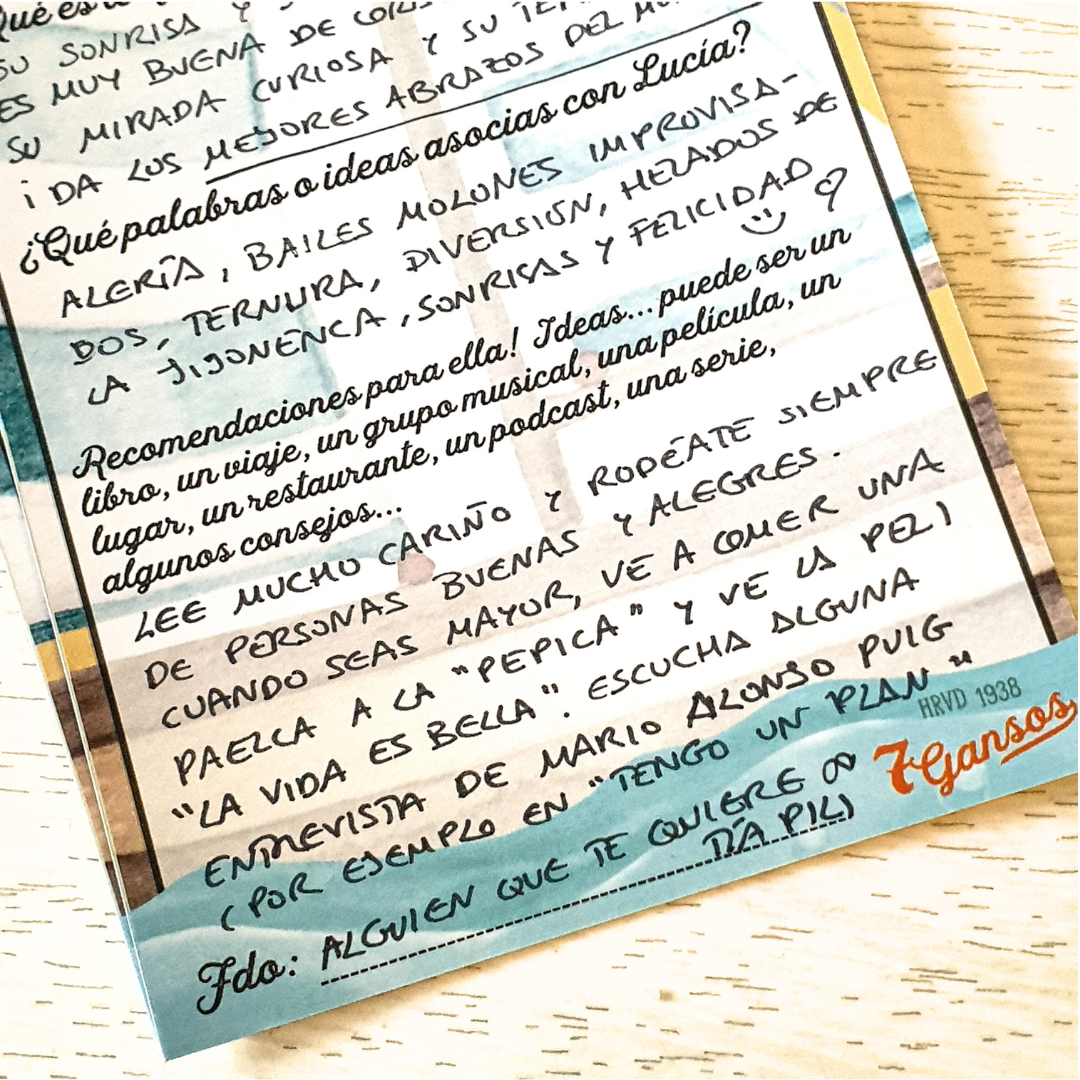 SU SONRISA Y
ES MUY BUENA DE
SU MIRADA CURIOSA Y SU
¡DA LOS MEJORES ABRAZOS DEL
¿Qué palabras o ideas asocias con Lucía?
ALERÍA, BAILES MOLONES IMPROVISA-
DOS, TERNURA, DIVERSIÓN, HELADOS DE
LA JIJONENCA, SONRISAS Y FELICIDAD
Recomendaciones para ella! Ideas... puede ser un
libro, un viaje, un grupo musical, una película, un
lugar, un restaurante, un podcast, una serie,
algunos consejos...
LEE MUCHO CARIÑO Y RODÉATE SIEMPRE
DE PERSONAS BUENAS Y ALEGRES.
CUANDO SEAS MAYOR, VE A COMER UNA
PAELLA A LA "PEPICA" Y VE LA PELI
"LA VIDA ES BELLA". ESCUCHA ALGUNA
ENTREVISTA DE MARIO ALONSO PUIG
(POR EJEMPLO EN "TENGO UN PLAN"
HRVD 1938
7Gansos
Fdo: ALGUIEN QUE TE QUIERE ∞
TÍA PILI